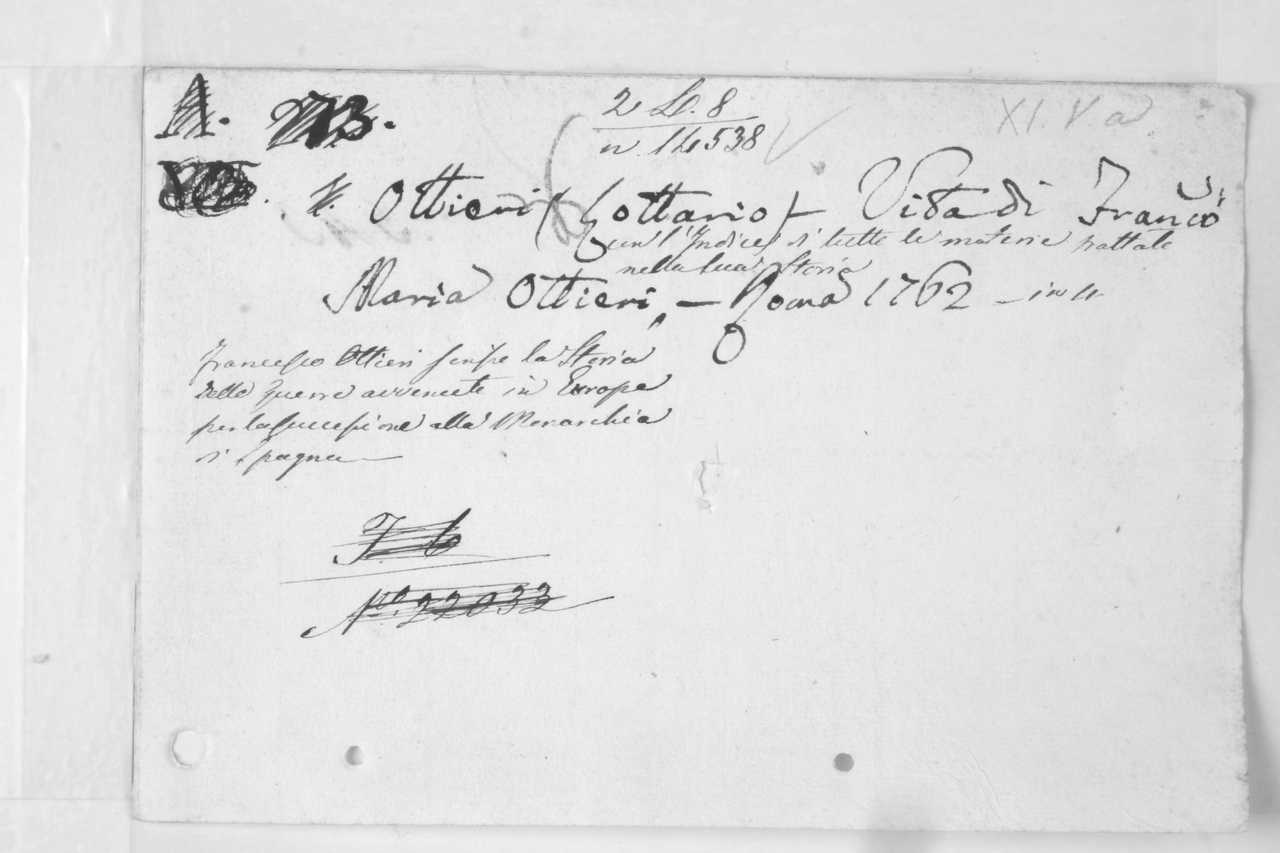 A. 273.
2 L. 8
n. 14538
XI. V. a.
Ottieri (Lottario) – Vita di Franc.co
con l'Indice di tutte le materie trattate
nella sua Storia
Maria Ottieri, – Roma 1762 – in 4
Francesco Ottieri scrisse la Storia
delle guerre avvenute in Europa
per la successione alla Monarchia
di Spagna
N.o 22033